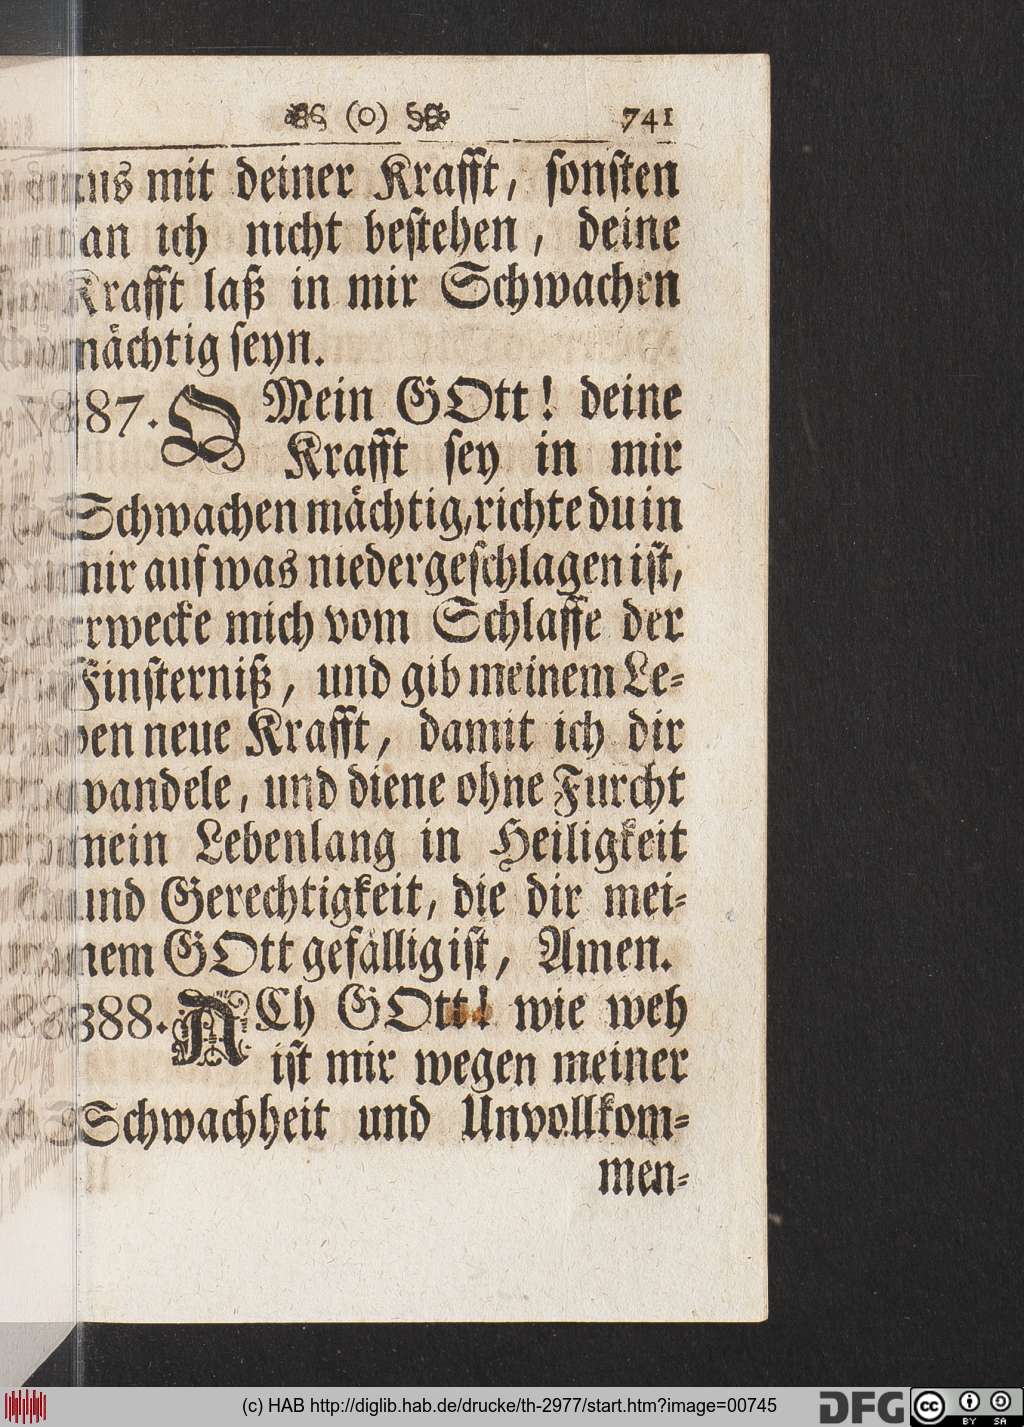 (o) 741
mit deiner Krafft, sonsten
ich nicht bestehen, deine
Krafft laß in mir Schwachen
mächtig seyn.
887. O Mein GOtt! deine
Krafft sey in mir
Schwachen mächtig, richte du in
mir auf was niedergeschlagen ist,
erwecke mich vom Schlaffe der
Finsterniß, und gib meinem Le-
ben neue Krafft, damit ich dir
wandele, und diene ohne Furcht
mein Lebenlang in Heiligkeit
und Gerechtigkeit, die dir mei-
nem GOtt gefällig ist, Amen.
888. ACh GOtt! wie weh
ist mir wegen meiner
Schwachheit und Unvollkom-
men-
(c) HAB http://diglib.hab.de/drucke/th-2977/start.htm?image=00745
DFG
cc BY SA